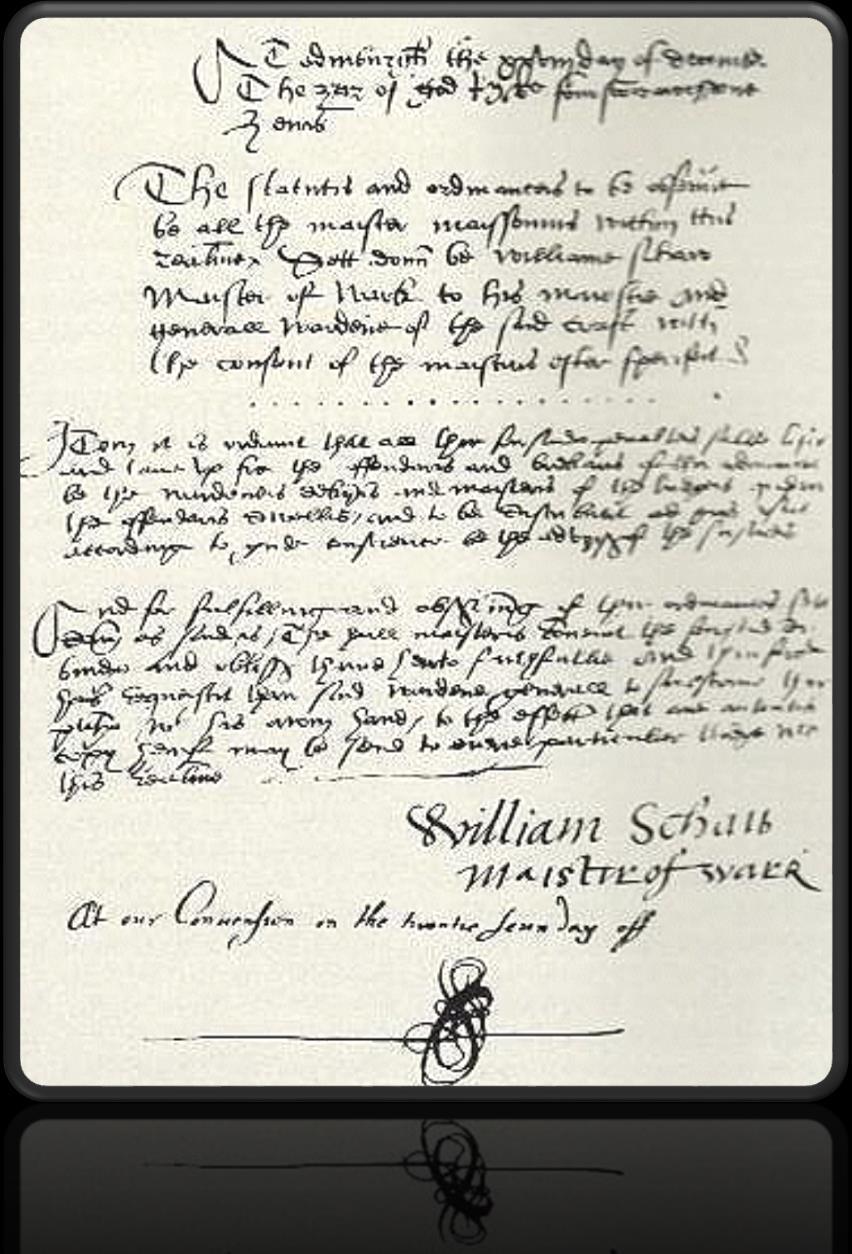 At Edinburgh the day of december
The zeir of god
zeiris
The statutis and ordinanceis to be obseruit
be all the maister maissounis within this
realme Sett doun be Williame Schaw
Maister of Wark to his maiestie And
generall Wardene of the said craft with
the consent of the maisteris efter specifeit
Item it is ordanit that all thir foirsaidis penalteis salbe liftit
and tane vp fra the offendaris and brekaris of thir ordinances
be the wardeneis dekynis and maisteris of the ludgeis quhair
the offendaris dwellis, and to be distributit ad pios vsus
according to gude conscience be the advyis of the foirsaidis
And for fulfilling and observing of thir ordinances sett
doun as said is, The haill maisteris convenit the foirsaid day
bindis and oblissis thame heirto faithfullie And thairfore
hes requestit thair said wardene generall to thir
wt his awn hand, to the effect that ane autentik
copy heirof may be send to euerie particular ludge wtin
this realme
William Schaw
Maister of wark
At our Convension on the twentie day off